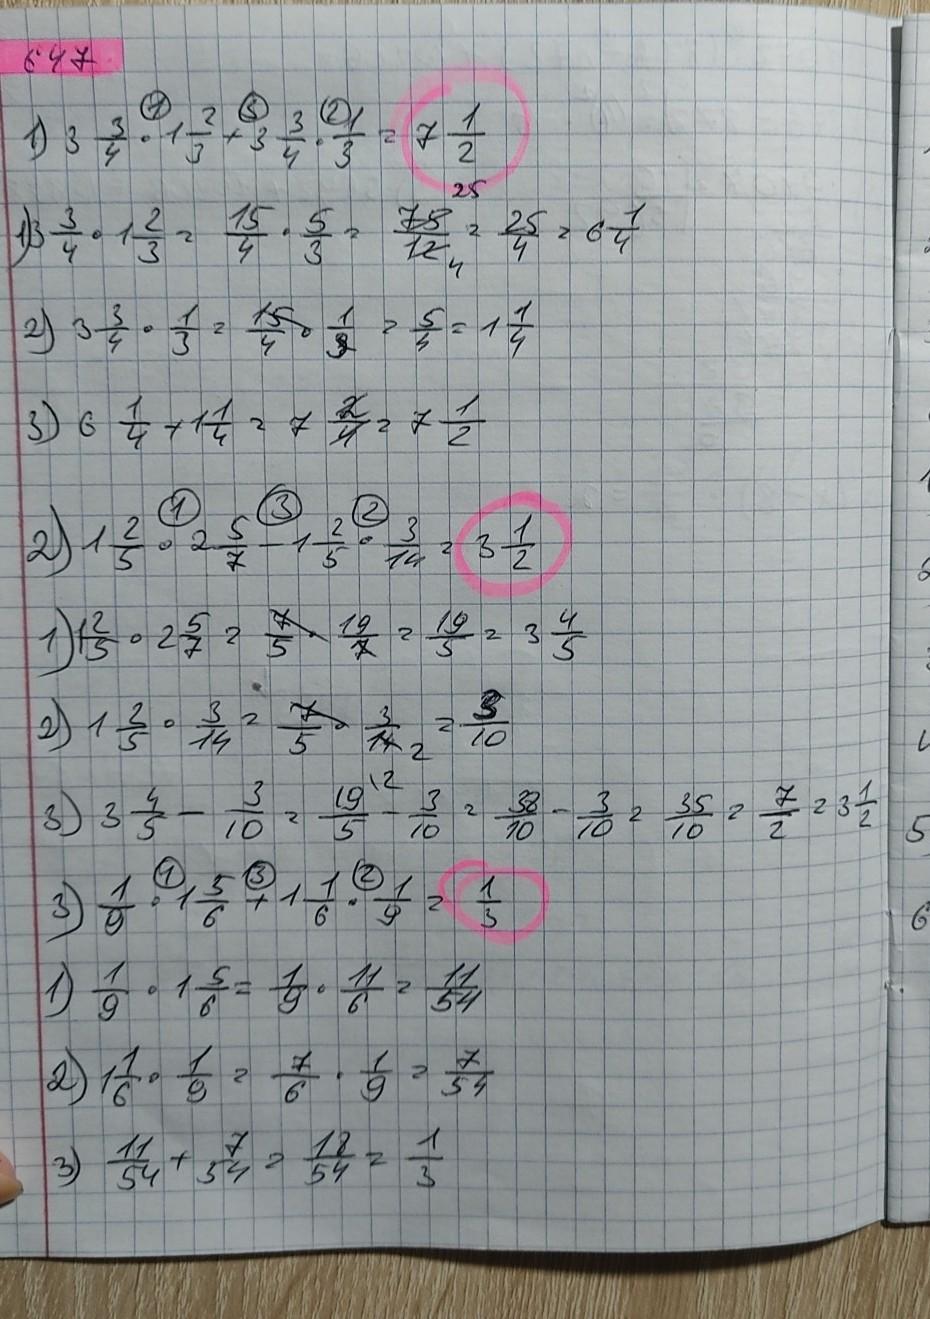 647
1) 3 3/4 · 1 2/3 + 3 3/4 · 1/3 = 7 1/2
1) 3 3/4 · 1 2/3 = 15/4 · 5/3 = 75/12 25 4 = 25/4 = 6 1/4
2) 3 3/4 · 1/3 = 15/4 · 1/3 = 5/4 = 1 1/4
3) 6 1/4 + 1 1/4 = 7 2/4 = 7 1/2
2) 1 2/5 · 2 5/7 - 1 2/5 · 3/14 = 3 1/2
1) 1 2/5 · 2 5/7 = 7/5 · 19/7 = 19/5 = 3 4/5
2) 1 2/5 · 3/14 = 7/5 · 3/14 2 = 3/10
3) 3 4/5 - 3/10 = 19/5 \2 - 3/10 = 38/10 - 3/10 = 35/10 = 7/2 = 3 1/2
3) 1/9 · 1 5/6 + 1 1/6 · 1/9 = 1/3
1) 1/9 · 1 5/6 = 1/9 · 11/6 = 11/54
2) 1 1/6 · 1/9 = 7/6 · 1/9 = 7/54
3) 11/54 + 7/54 = 18/54 = 1/3